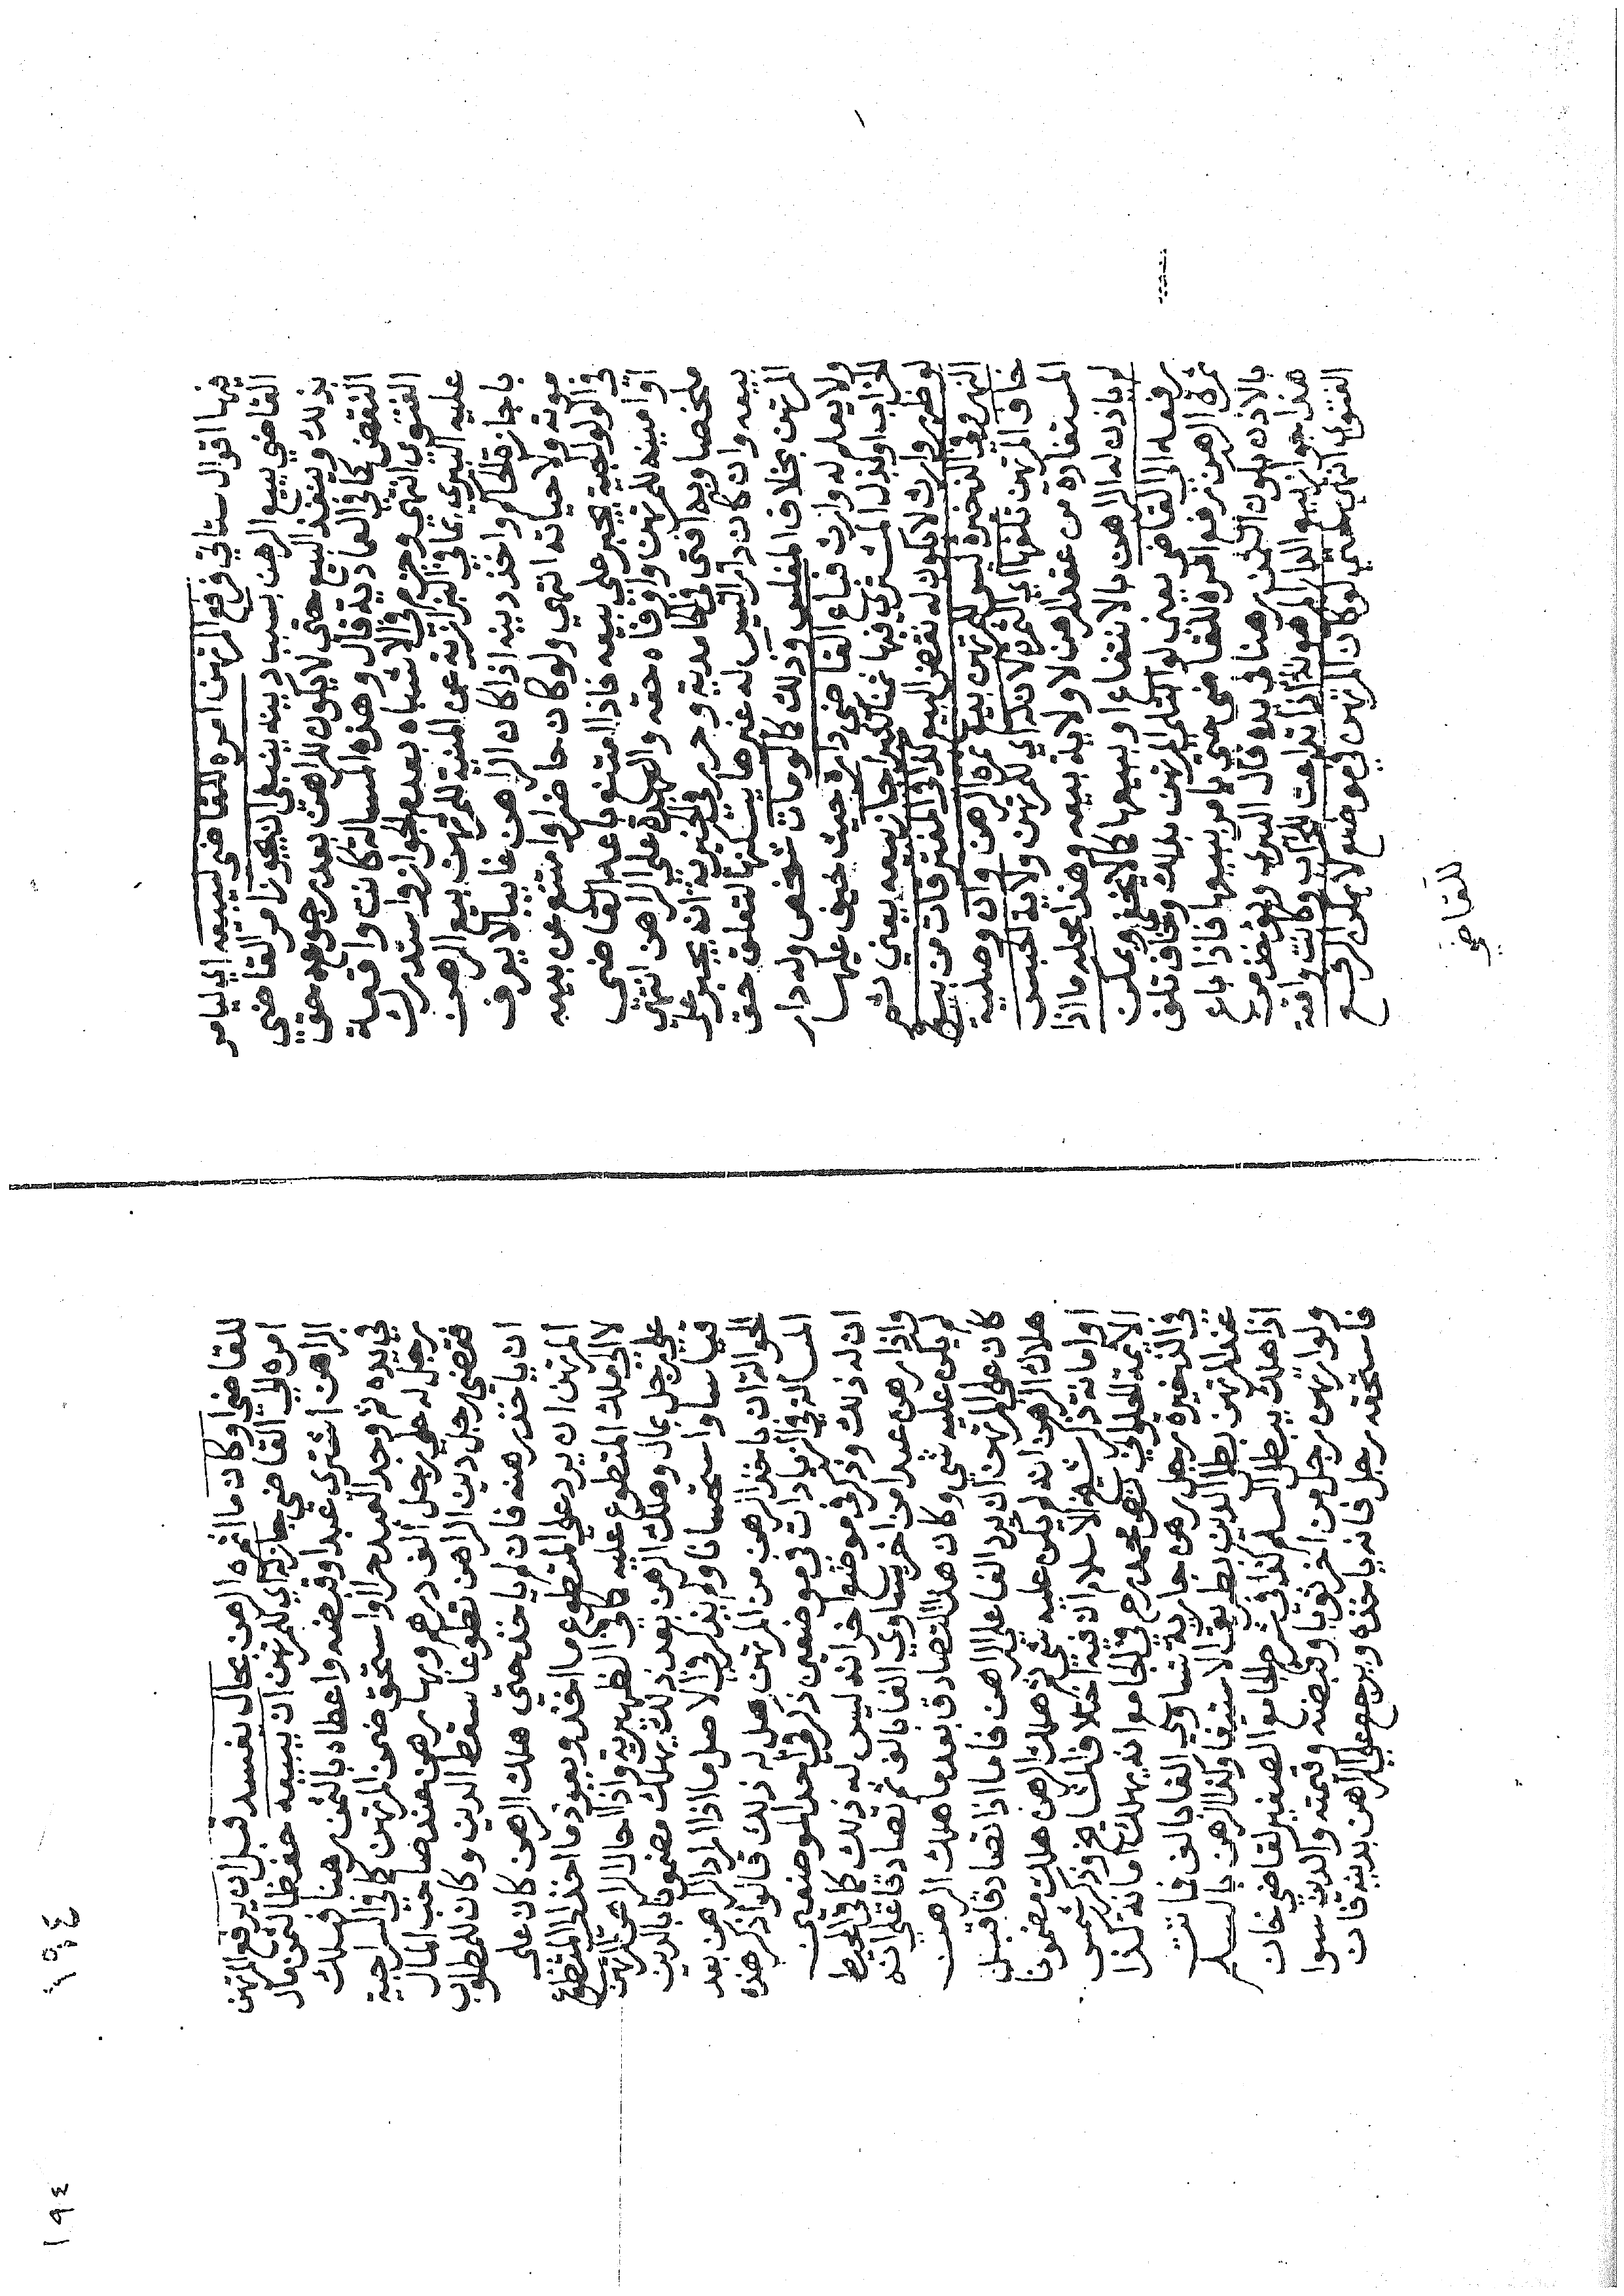 فيها اقوال ستاتي فرع المرتهن امره للقاضي ليبيعه اي ليامر
القاضي ببيع الرهن بسبب دينه ينبغي ان يجوز امر القاضي
بذلك وينفذ البيع حتي لا يكون للراهن بعد رجوعه حق
النقض كما في العمادية قال وهذه المسالة كانت واقعة
الفتوي انتهي وجزم في الاشباه بعدم الجواز واستدرك
عليه البيري بما في البزازية عن المنية للمرتهن بيع الرهن
باجازة الحاكم واخذ دينه اذا كان الراهن غايبا لا يعرف
موته ولا حياته انتهي ولو كان حاضرا وامتنع عن بيعه
في الولوالجية يجبر علي بيعه فاذا امتنع باعه القاضي
او امينه للمرتهن واوفاه حقه والعهدة علي الراهن انتهي
ملخصا وبه افتي في الحامدية وحرر في الخيرية انه يجبر علي
بيعه وان كان دارا ليس له غيرها يسكنها لتعلق حق
المرتهن بخلاف المفلس وذلك كما لو مات شخص وله دار
ولا يعلم له وارث فباع القاضي داره حيث خيف عليها
الخراب او بذل المشتري فيها ثمنا كثيرا جاز بيعه يعني ثم
لو ظهر وارث لا يكون له نقض البيع كذا في المتفرقات من بيوع
النهر وفي الذخيرة ليس للمرتهن بيع ثمرة الرهن وان وصلية
خاف المرتهن تلفها اي الثمرة لانه اي للمرتهن ولاية الحبس
المستفادة من عقد الرهن لا ولاية بيعه وهذا محله ما اذا
لم ياذن له الراهن بالانتفاع او ببيعها كما لا يخفي ويمكن
رفعه الي القاضي يعني لو لم اثتلم المرتهن بذلك وخاف تلف
ثمرة الرهن يرفع امره للقاضي حتي يامر ببيعها فاذا باع
بالاذن يكون الثمن رهنا في يده قال البيري ويؤخذ من
هذا جواز بيع الدار المرهونة اذا تداعت للخراب وكانت واقعة
الفتوي انتهي حتي لو كان المرتهن في موضع لا يمكن الرفع
للقاضي
للقاضي او كان ما اثمره الرهن بحال يفسد قبل ان يرفع المرتهن
امره الي القاضي جاز له اي للمرتهن ان يبيعه حفظا لثمن مال
الراهن اشتري عبدا وقبضه واعطاه بالثمن رهنا فهلك
في يده ثم وجد العبد حرا او استحق ضمن المرتهن كما في السراجية
رجل له علي رجل الف درهم وبها رهن عند صاحب المال
فقضي رجل دين الراهن تطوعا سقط الدين وكان للمطلوب
ان ياخذ رهنه فان لم ياخذ حتي هلك الرهن كان علي
المرتهن ان يرد علي المتطوع ما اخذ ويعود ما اخذ الي المتطوع
لا الي ملك المتطوع عليه كما في الظهيرية واذا احال الراهن المرتهن
علي رجل بمال وهلك الرهن بعد ذلك يهلك مضمونا بالدين
قياسا واستحسانا ولم يذكر في الاصل ما اذا اراد الراهن بعد
الحوالة ان ياخذ الرهن من المرتهن هل له ذلك قالوا ذكر هذه
المسالة في الزيادات في موضعين ذكر في احد الموضعين
ان له ذلك وذكر في موضع اخر انه ليس له ذلك كما في المحيط
واذا رهن عبدا من اخر يساوي الفا بالف ثم تصادقا علي انه
لم يكن عليه شي وكان هذا التصادق بعد ما هلك الرهن
كان علي المرتهن ان يرد الفا علي الراهن فاما اذا تصادقا قبل
هلاك الرهن انه لم يكن عليه شي ثم هلك الرهن هلك مضمونا
او امانة ذكر شيخ الاسلام ان فيه اختلاف المشايخ وذكر شمس
الايمة الحلواني نص محمد رح في الجامع انه يهلك امانة كذا
في الذخيرة رجل رهن جارية تساوي الفا بالف فماتت
عند المرتهن بطل الدين بطريق الاستيفا وكذا الرهن بالسلم
اذا هلك يبطل السلم كذا في شرح الجامع الصغير لقاضي خان
ولو ارتهن رجل من اخر ثوبا وقبضه وقيمته والدين سوا
فاستحقه رجل فانه ياخذه ويرجع علي الراهن بدينه فان
١٩٤
١٩٤